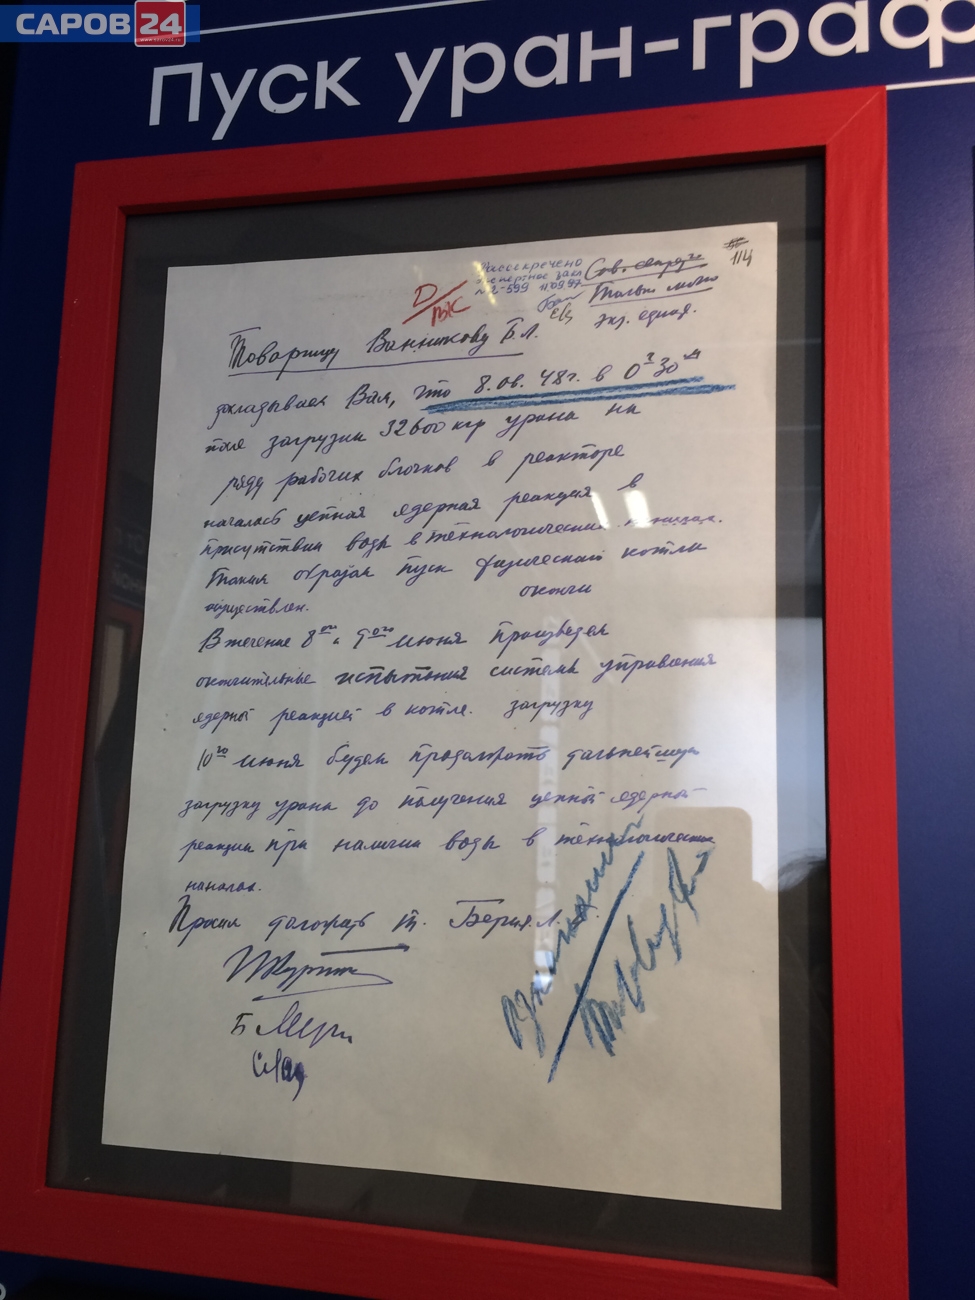 САРОВ 24
Пуск уран-граф
114
Рассекречено
экспертное закл
11 09 97
Сов. секретно
Только лично
Экз. един.
Товарищу Ванникову Б.Л.
докладываем Вам, что 8.06.48г. в 0ч 30м
после загрузки 32600 кгр урана на
ряду рабочих блочков в реакторе
началась цепная ядерная реакция в
присутствии воды в технологических
Таким образом пуск физический котла
осуществлен.
В течение 8ого и 9ого июня произведем
окончательные испытания системы управления
ядерной реакцией в котле. загрузку
10го июня будем продолжать дальнейшую
загрузку урана до получения цепной ядерной
реакции при наличии воды в технологических
каналах.
Просим доложить т. Берия Л.